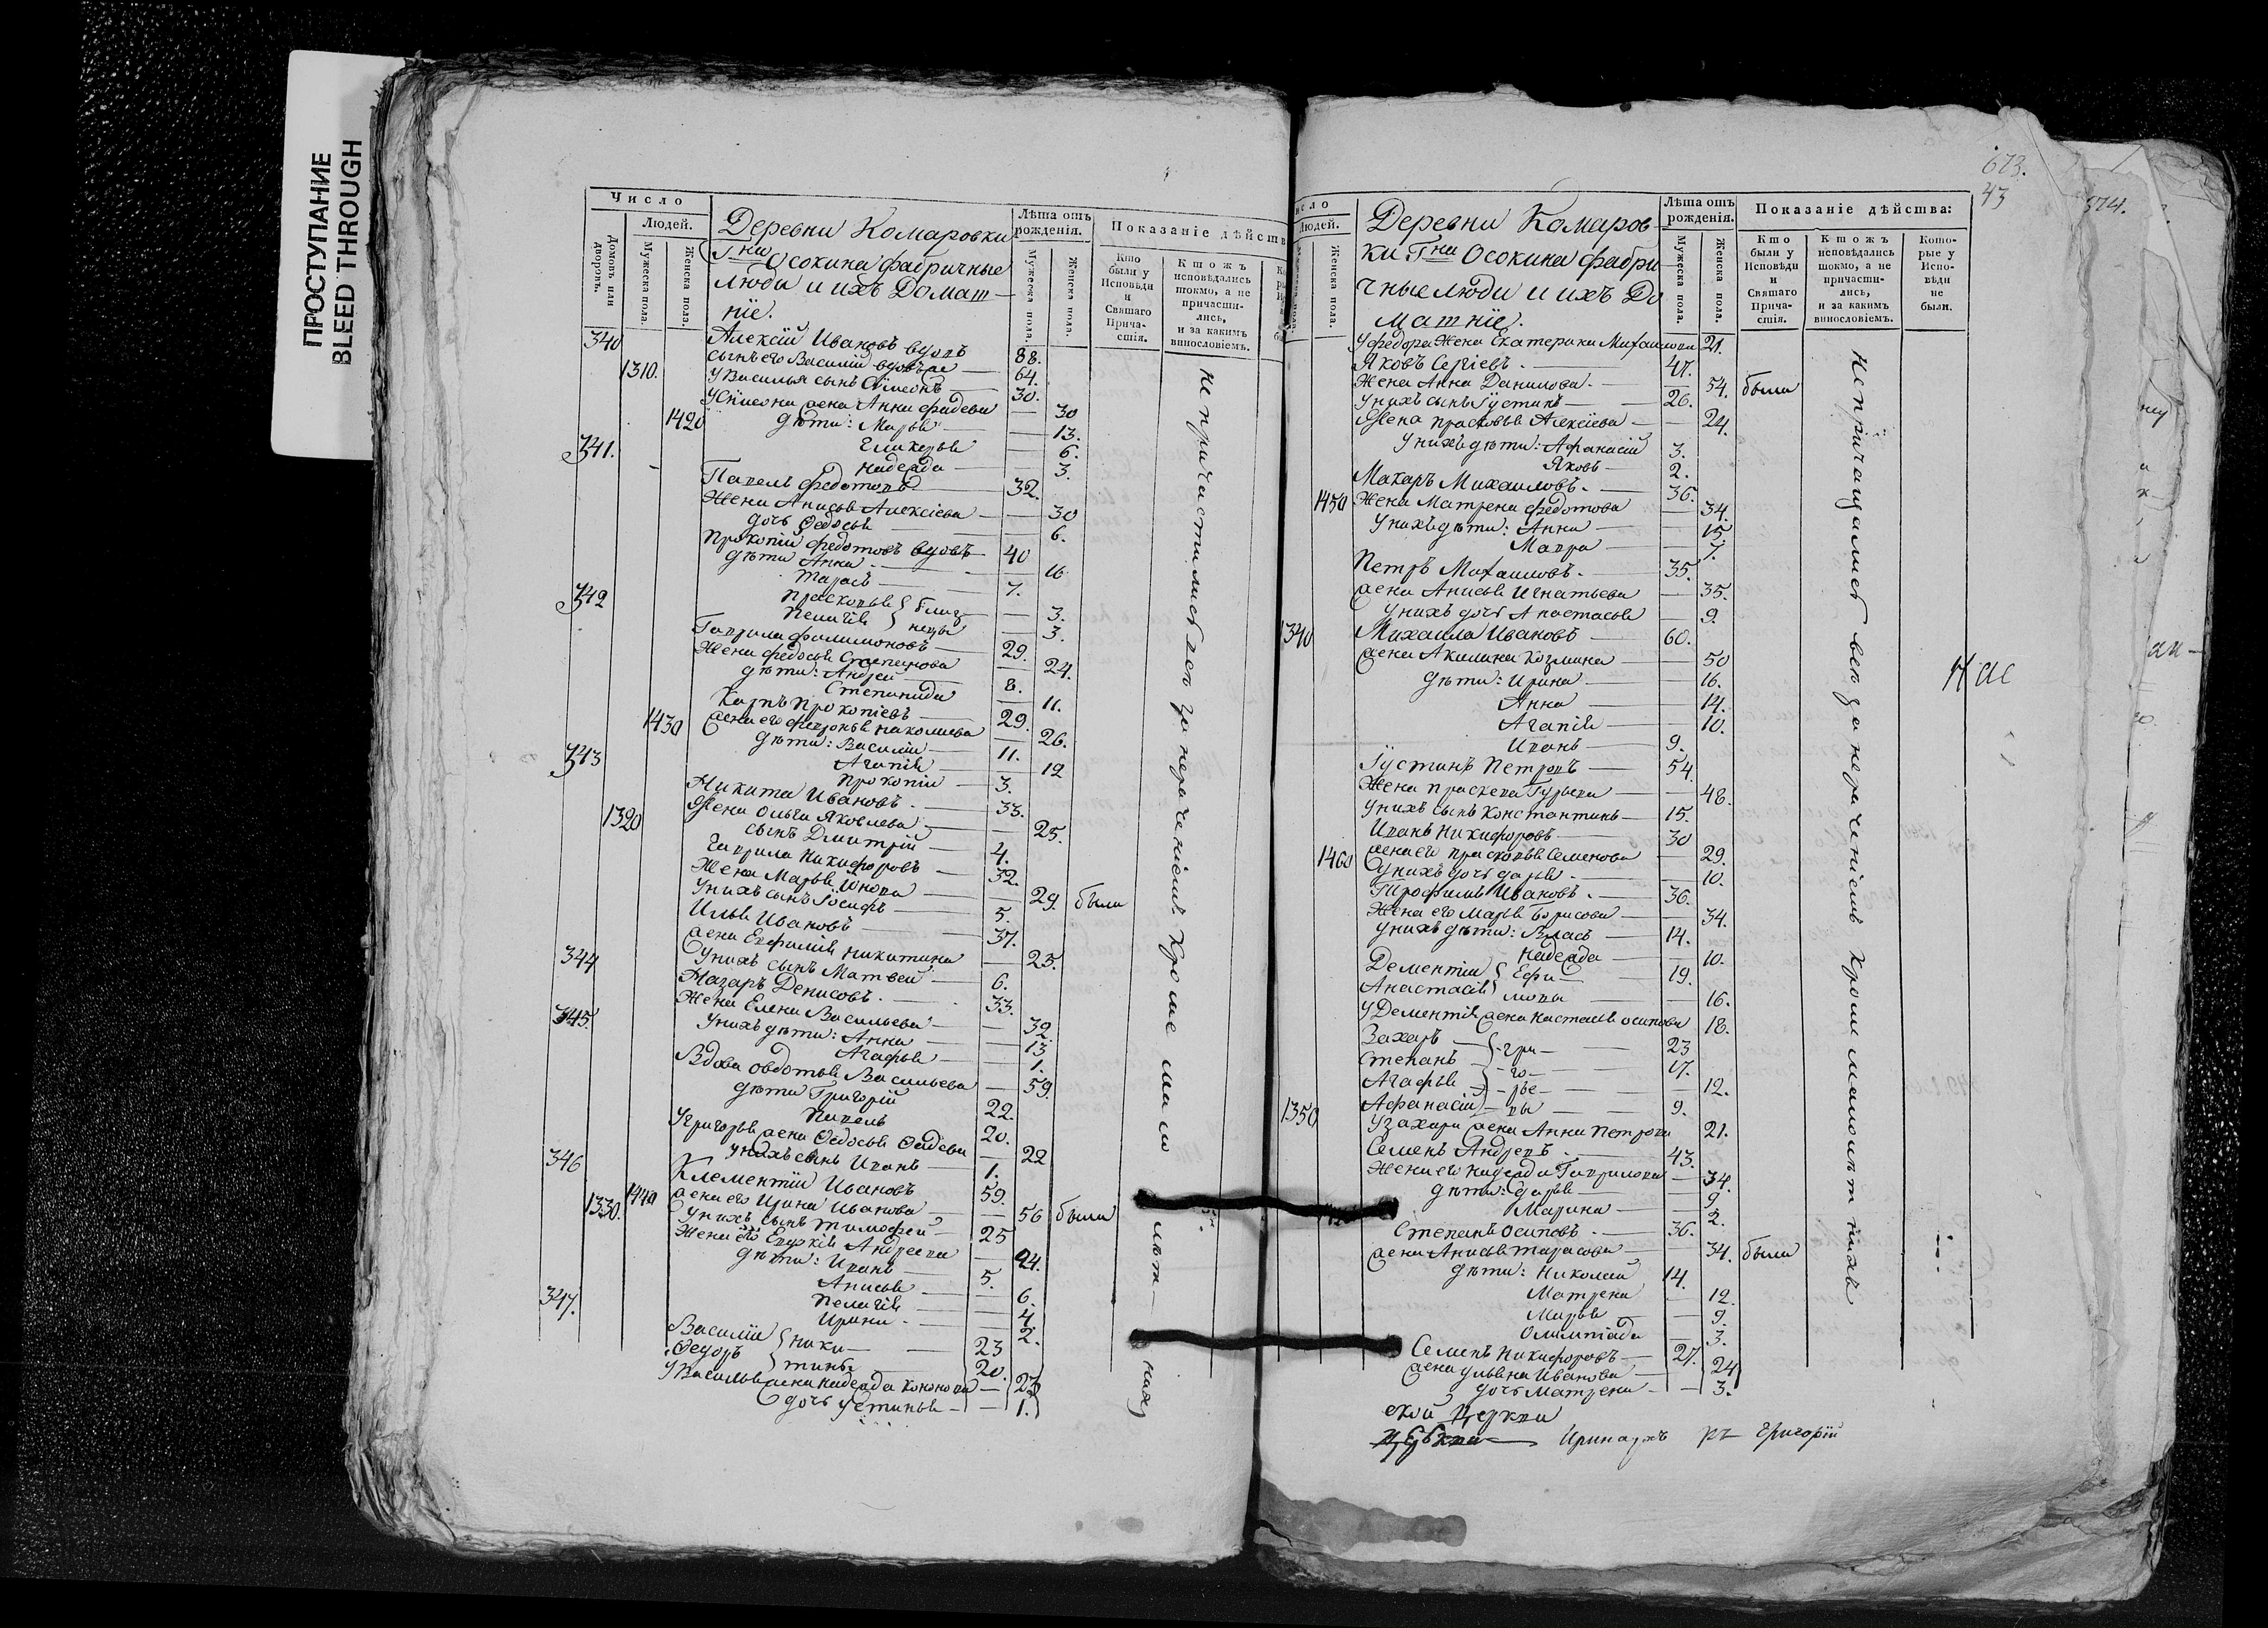 ПРОСТУПАНИЕ
BLEED THROUGH
Число
Домовъ или дворовъ.
Людей.
Мужеска пола.
Женска пола.
Деревни Комаровки
Гна Осокина фабричные
люди и ихъ Домаш-
ніе.
Лѣта отъ рожденія.
Мужеска пола.
Женска пола.
Показаніе дѣйств
Кто были у Исповѣди и Святаго Причастія.
Ктожъ исповѣдались токмо, а не причастились, и за какимъ винословіемъ.
340 Алексій Ивановъ вдовъ 88.
1310. сынъ его Василій вдовъ же 64.
У Василья сынъ Сѵмеонъ 30.
У Сѵмеона жена Анна фадеева 30
1420 дѣти: Марья 13.
Гликерья 6.
Надежда 3.
341. Павелъ федотовъ 32.
Жена Анисья Алексіева 30
дочь Федосья 6.
Прокопій федотовъ вдовъ 40
дѣти Анна 16
Тарасъ 7.
Прасковья } близ- 3.
Пелагія } нецы 3.
342 Гаврила филимоновъ 29.
Жена федосья Степанова 24.
дѣти: Андрей 8.
Степанида 11.
Карпъ Прокопіевъ 29.
1430 жена его февронья Николаева 26.
дѣти: Василій 11.
Агапія 12
Прокопій 3.
343 Никита Ивановъ 33.
Жена Ольга Яковлева 25.
1320 сынъ Дмитрій 4.
Гаврила Никифоровъ 32.
Жена Марья Іонова 29. были
У нихъ сынъ Іосифъ 5.
Илья Ивановъ 37.
жена Евфимія Никитина 25.
У нихъ сынъ Матвей 6.
344 Назаръ Денисовъ 33.
Жена Елена Васильева 32.
У нихъ дѣти: Анна 13
Агафья 1.
345. Вдова Овдотья Васильева 59.
дѣти Григорій 22.
Павелъ 20.
У Григорья жена Федосья Фадѣева 22
У нихъ сынъ Иванъ 1.
346 Клементій Ивановъ 59.
1440 жена его Ирина Иванова 56 были
1330. У нихъ сынъ Тимофей 25
Жена его Евдокія Андреева 24.
дѣти: Иванъ 5.
Анисья 6.
Пелагія 4
Ирина 2.
347. Василій } Ники- 23
Федоръ } тины 20.
У Василья жена Надежда Кононова 23
дочь Устинья 1.
не причастились всѣ за нерачениемъ кроме мало лѣт- нихъ
673.
43
574.
Число
Людей.
Женска пола.
Деревни Комаров-
ки Гна Осокина фабри-
чные люди и ихъ До
машніе.
Лѣта отъ рожденія.
Мужеска пола.
Женска пола.
Показаніе дѣйства:
Кто были у Исповѣди и Святаго Причастія.
Ктожъ исповѣдались токмо, а не причастились, и за какимъ винословіемъ.
Которые у Исповѣди не были.
У федора Жена Екатерина Михаилова 21.
Яковъ Сергіевъ 47.
Жена Анна Данилова 54. были
У нихъ сынъ Іустинъ 26.
Жена Прасковья Алексіева 24.
У нихъ дѣти: Афанасій 3.
Яковъ 2.
Макаръ Михаиловъ 36.
1450 Жена Матрена федотова 34.
У нихъ дѣти: Анна 15.
Мавра 7.
Петръ Михаиловъ 35.
жена Анисья Игнатьева 35.
У нихъ дочь Анастасья 9.
1340 Михаила Ивановъ 60.
жена Акилина Козмина 50
дѣти: Ирина 16.
Анна 14.
Агапія 10.
Иванъ 9.
Іустинъ Петровъ 54
Жена Праскева Гурьева 48.
У нихъ сынъ Константинъ 15.
Иванъ Никифоровъ 30
1460 жена его Прасковья Семенова 29.
У нихъ дочь дарья 10.
Трофимъ Ивановъ 36.
Жена его Марья Борисова 34.
У нихъ дѣти: Власъ 14.
Надежда 10.
Дементій } Ефи- 19.
Анастасія } мовы 16.
У Дементія жена Настасья Осипова 18.
Захаръ } гри- 23
Степанъ } го- 17.
Агафья } рье- 12.
1350 Афанасій } вы 9.
У Захара жена Анна Петрова 21.
Семенъ Андреевъ 43.
Жена его Надежда Гаврилова 34.
дѣти: дарья 9
Марина 2.
Степанъ Осиповъ 36.
жена Анисья Тарасова 34. были
дѣти: Николай 14.
Матрена 12.
Марья 9.
Олимпіада 3.
Семенъ Никифоровъ 27.
жена Ульяна Иванова 24
дочь Матрена 3.
не причащались всѣ за нерачениемъ кроме малолѣтнихъ
ской Церкви
Иринархъ Григорій